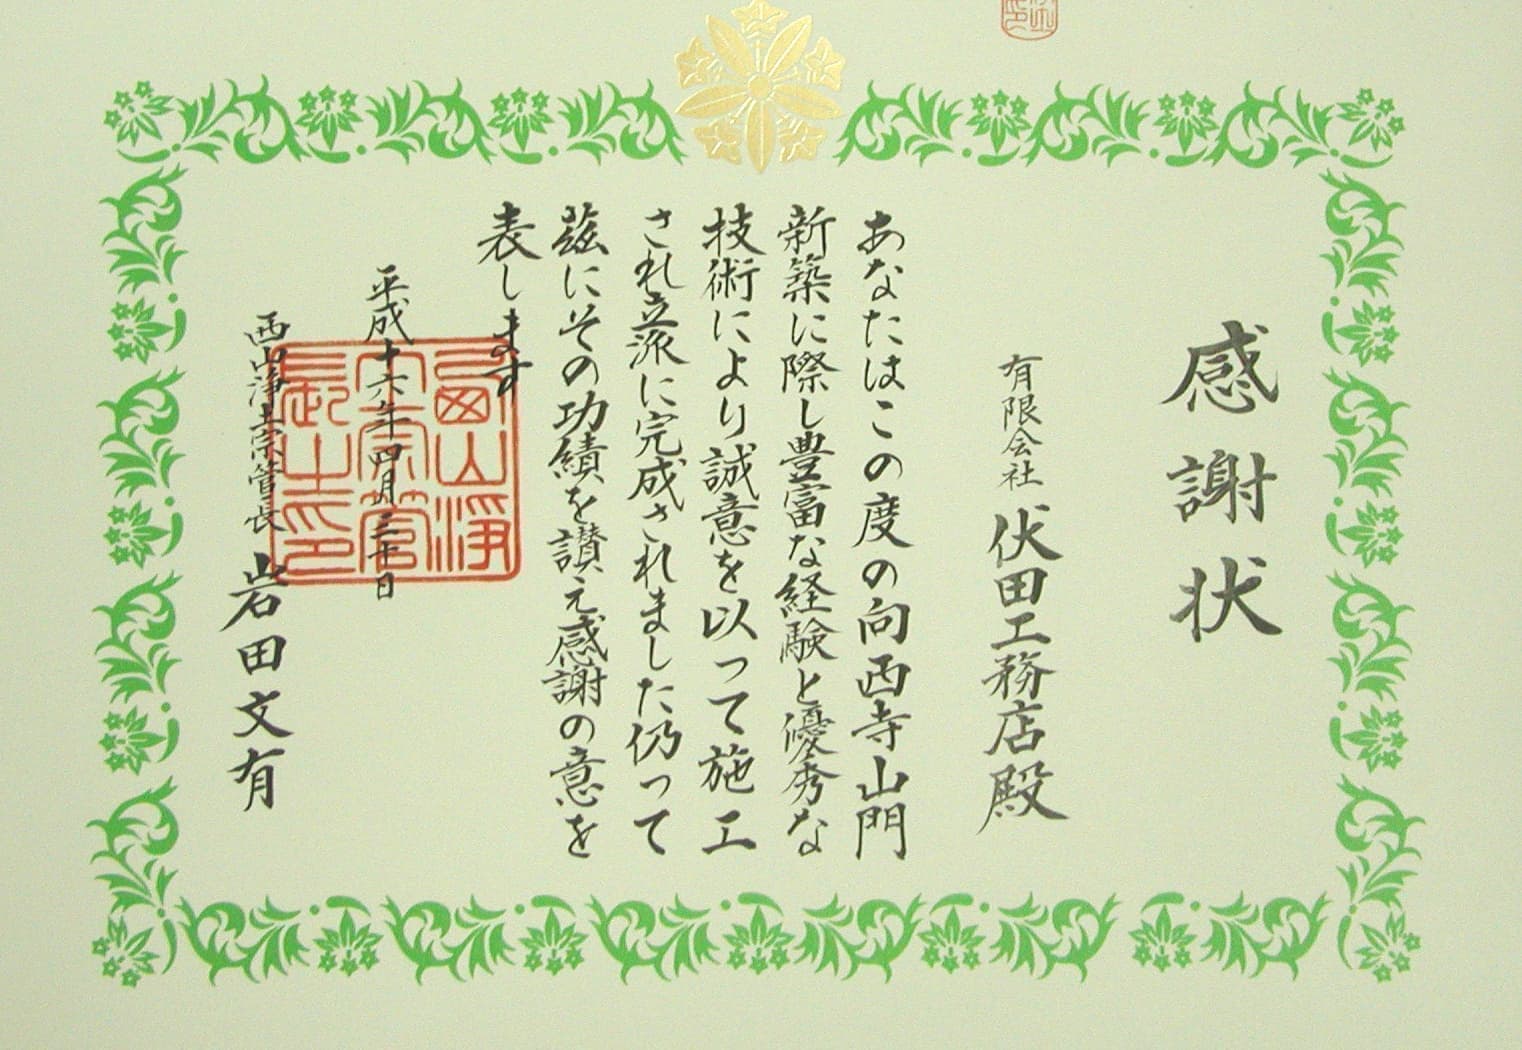 感謝状
有限会社 伏田工務店殿
あなたはこの度の向西寺山門
新築に際し豊富な経験と優秀な
技術により誠意を以って施工
され立派に完成されました仍って
茲にその功績を讃え感謝の意を
表します
平成十六年四月三十日
西山浄土宗管長 岩田文有
西山浄
土宗管
長之印